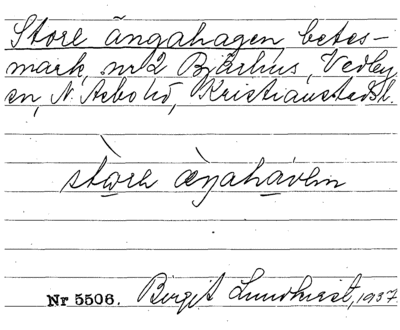 Store ängahagen betes-
mark, nr 2 Bjärhus, Vedby
sn, N. Åsbo hd, Kristianstads l.
store æŋahaven
Nr 5506. Birgit Lundkvist, 1937.